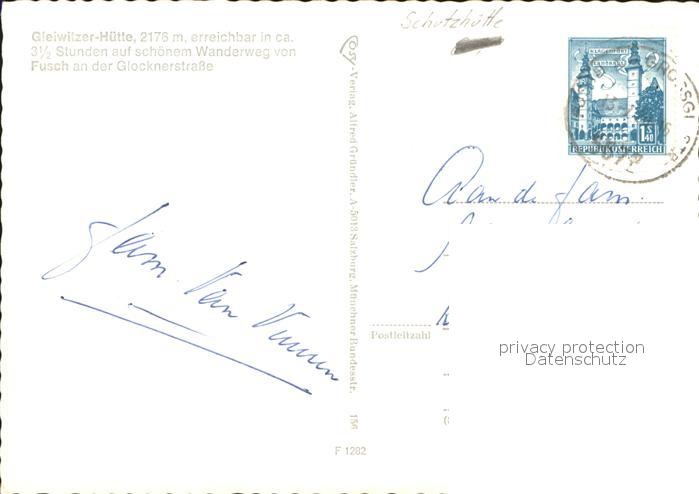 Gleiwitzer-Hütte, 2176 m, erreichbar in ca.
3½ Stunden auf schönem Wanderweg von
Fusch an der Glocknerstraße
Schutzhütte
Cosy-Verlag, Alfred Gründler, A-5013 Salzburg, Münchner Bundesstr. 156
KLAGENFURT
LANDHAUS
1 S 40
REPUBLIK ÖSTERREICH
Aan de fam.
fam. Van
Postleitzahl
F 1282
privacy protection
Datenschutz